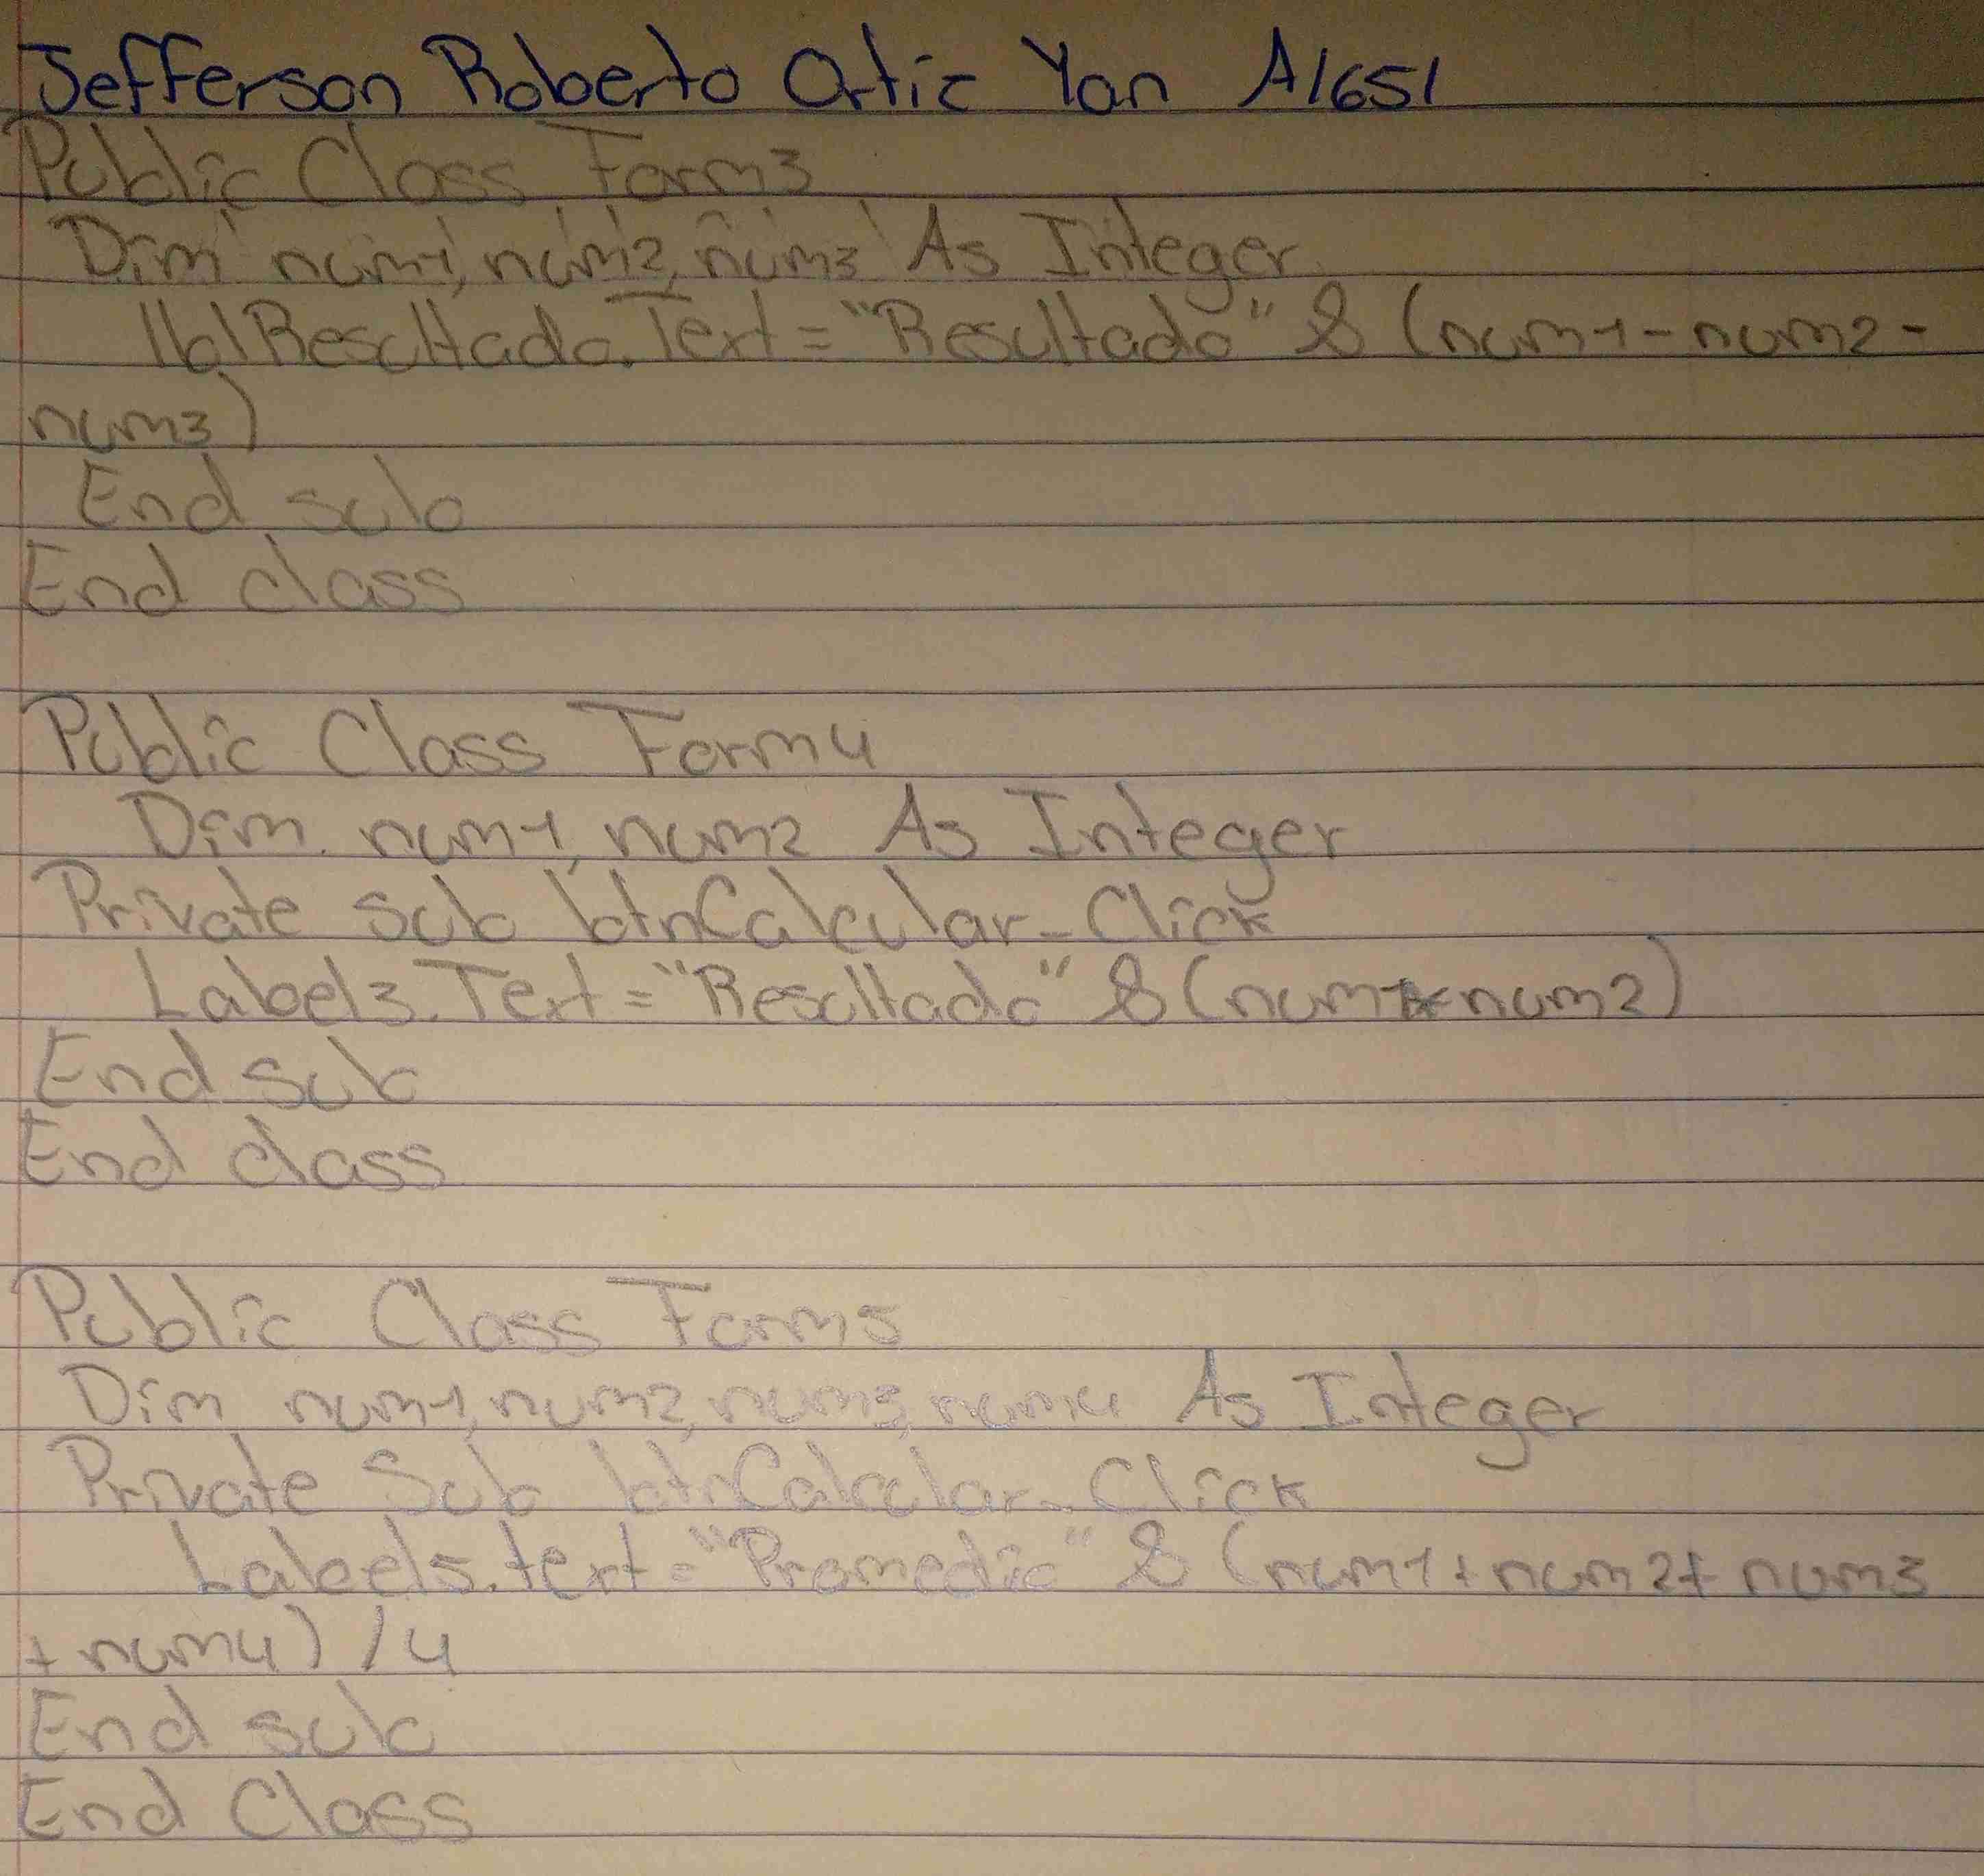 Jefferson Roberto Ortic Yan A1651
Public Class Form3
Dim num1, num2, num3 As Integer
lblResultado.Text = "Resultado" & (num1 - num2 -
num3)
End sub
End class
Public Class Form4
Dim num1, num2 As Integer
Private sub btnCalcular_Click
Label3.Text = "Resultado" & (num1 * num2)
End sub
End class
Public Class Form5
Dim num1, num2, num3, num4 As Integer
Private Sub btnCalcular_Click
Label5.text = "Promedio" & (num1 + num2 + num3
+ num4) / 4
End sub
End Class